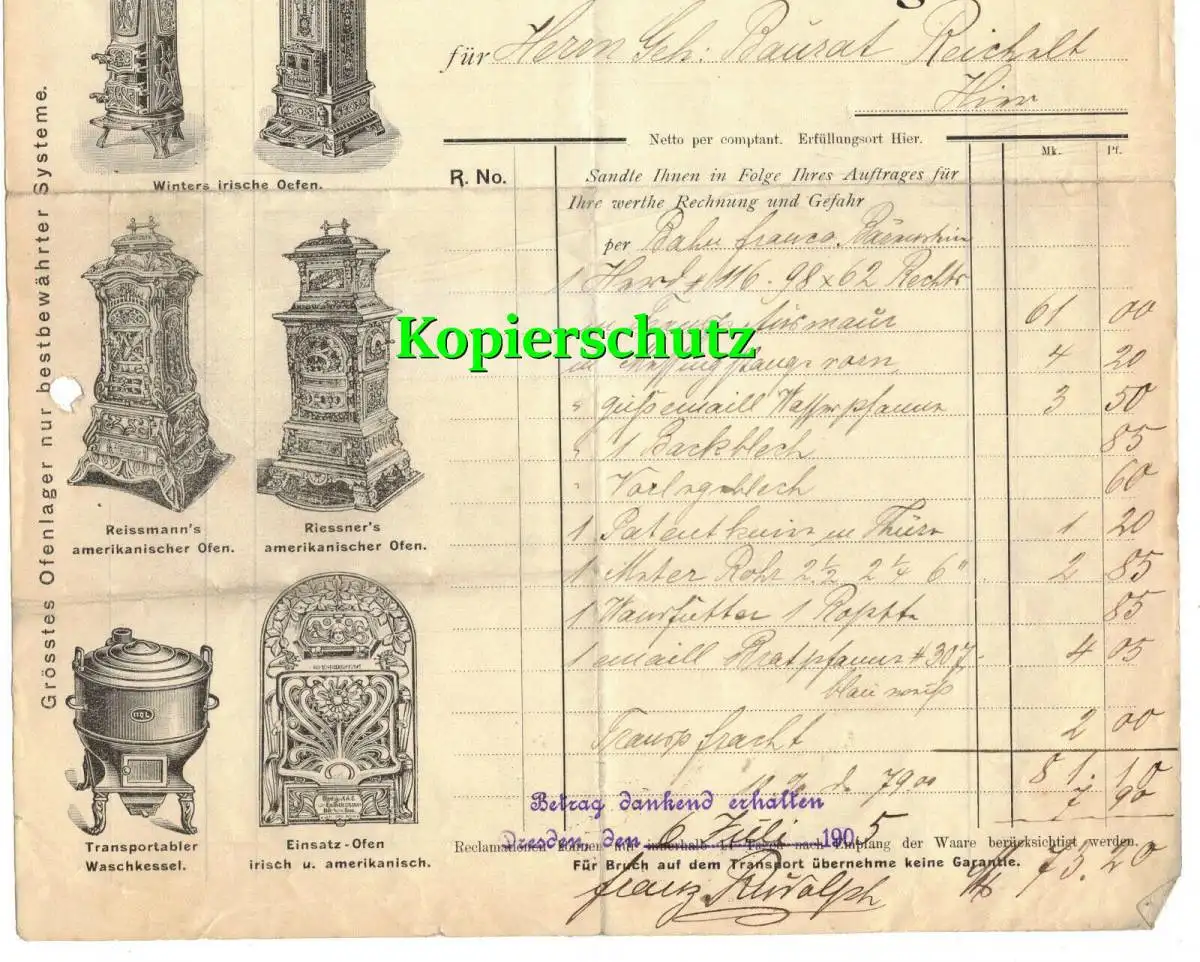 für Herrn Geh: Baurat Reichelt
Hier
Netto per comptant. Erfüllungsort Hier.
Mk. Pf.
R. No.
Sandte Ihnen in Folge Ihres Auftrages für
Ihre werthe Rechnung und Gefahr
per Bahn franco
1 Herd # 116 - 98 x 62 Rechts
61 00
m Messingstange vorn 4 20
" gußemaill Wasserpfanne 3 50
" 1 Backblech 85
" Vorlegeblech 60
1 Patent m Thüre 1 20
1 Meter Rohr 2 1/2 2 1/4 6" 2 85
1 1 85
1 emaill Bratpfanne # 307 - 4 05
blau weiß
Transp fracht 2 00
81.10
79 00
7 90
Betrag dankend erhalten
Dresden, den 6 Juli 1905
Reclamationen können nur innerhalb 14 Tagen nach Empfang der Waare berücksichtigt werden.
Für Bruch auf dem Transport übernehme keine Garantie.
Mk 73.20
Franz Rudolph
Grösstes Ofenlager nur bestbewährter Systeme.
Winters irische Oefen.
Reissmann's
amerikanischer Ofen.
Riessner's
amerikanischer Ofen.
Transportabler
Waschkessel.
Einsatz-Ofen
irisch u. amerikanisch.
Kopierschutz